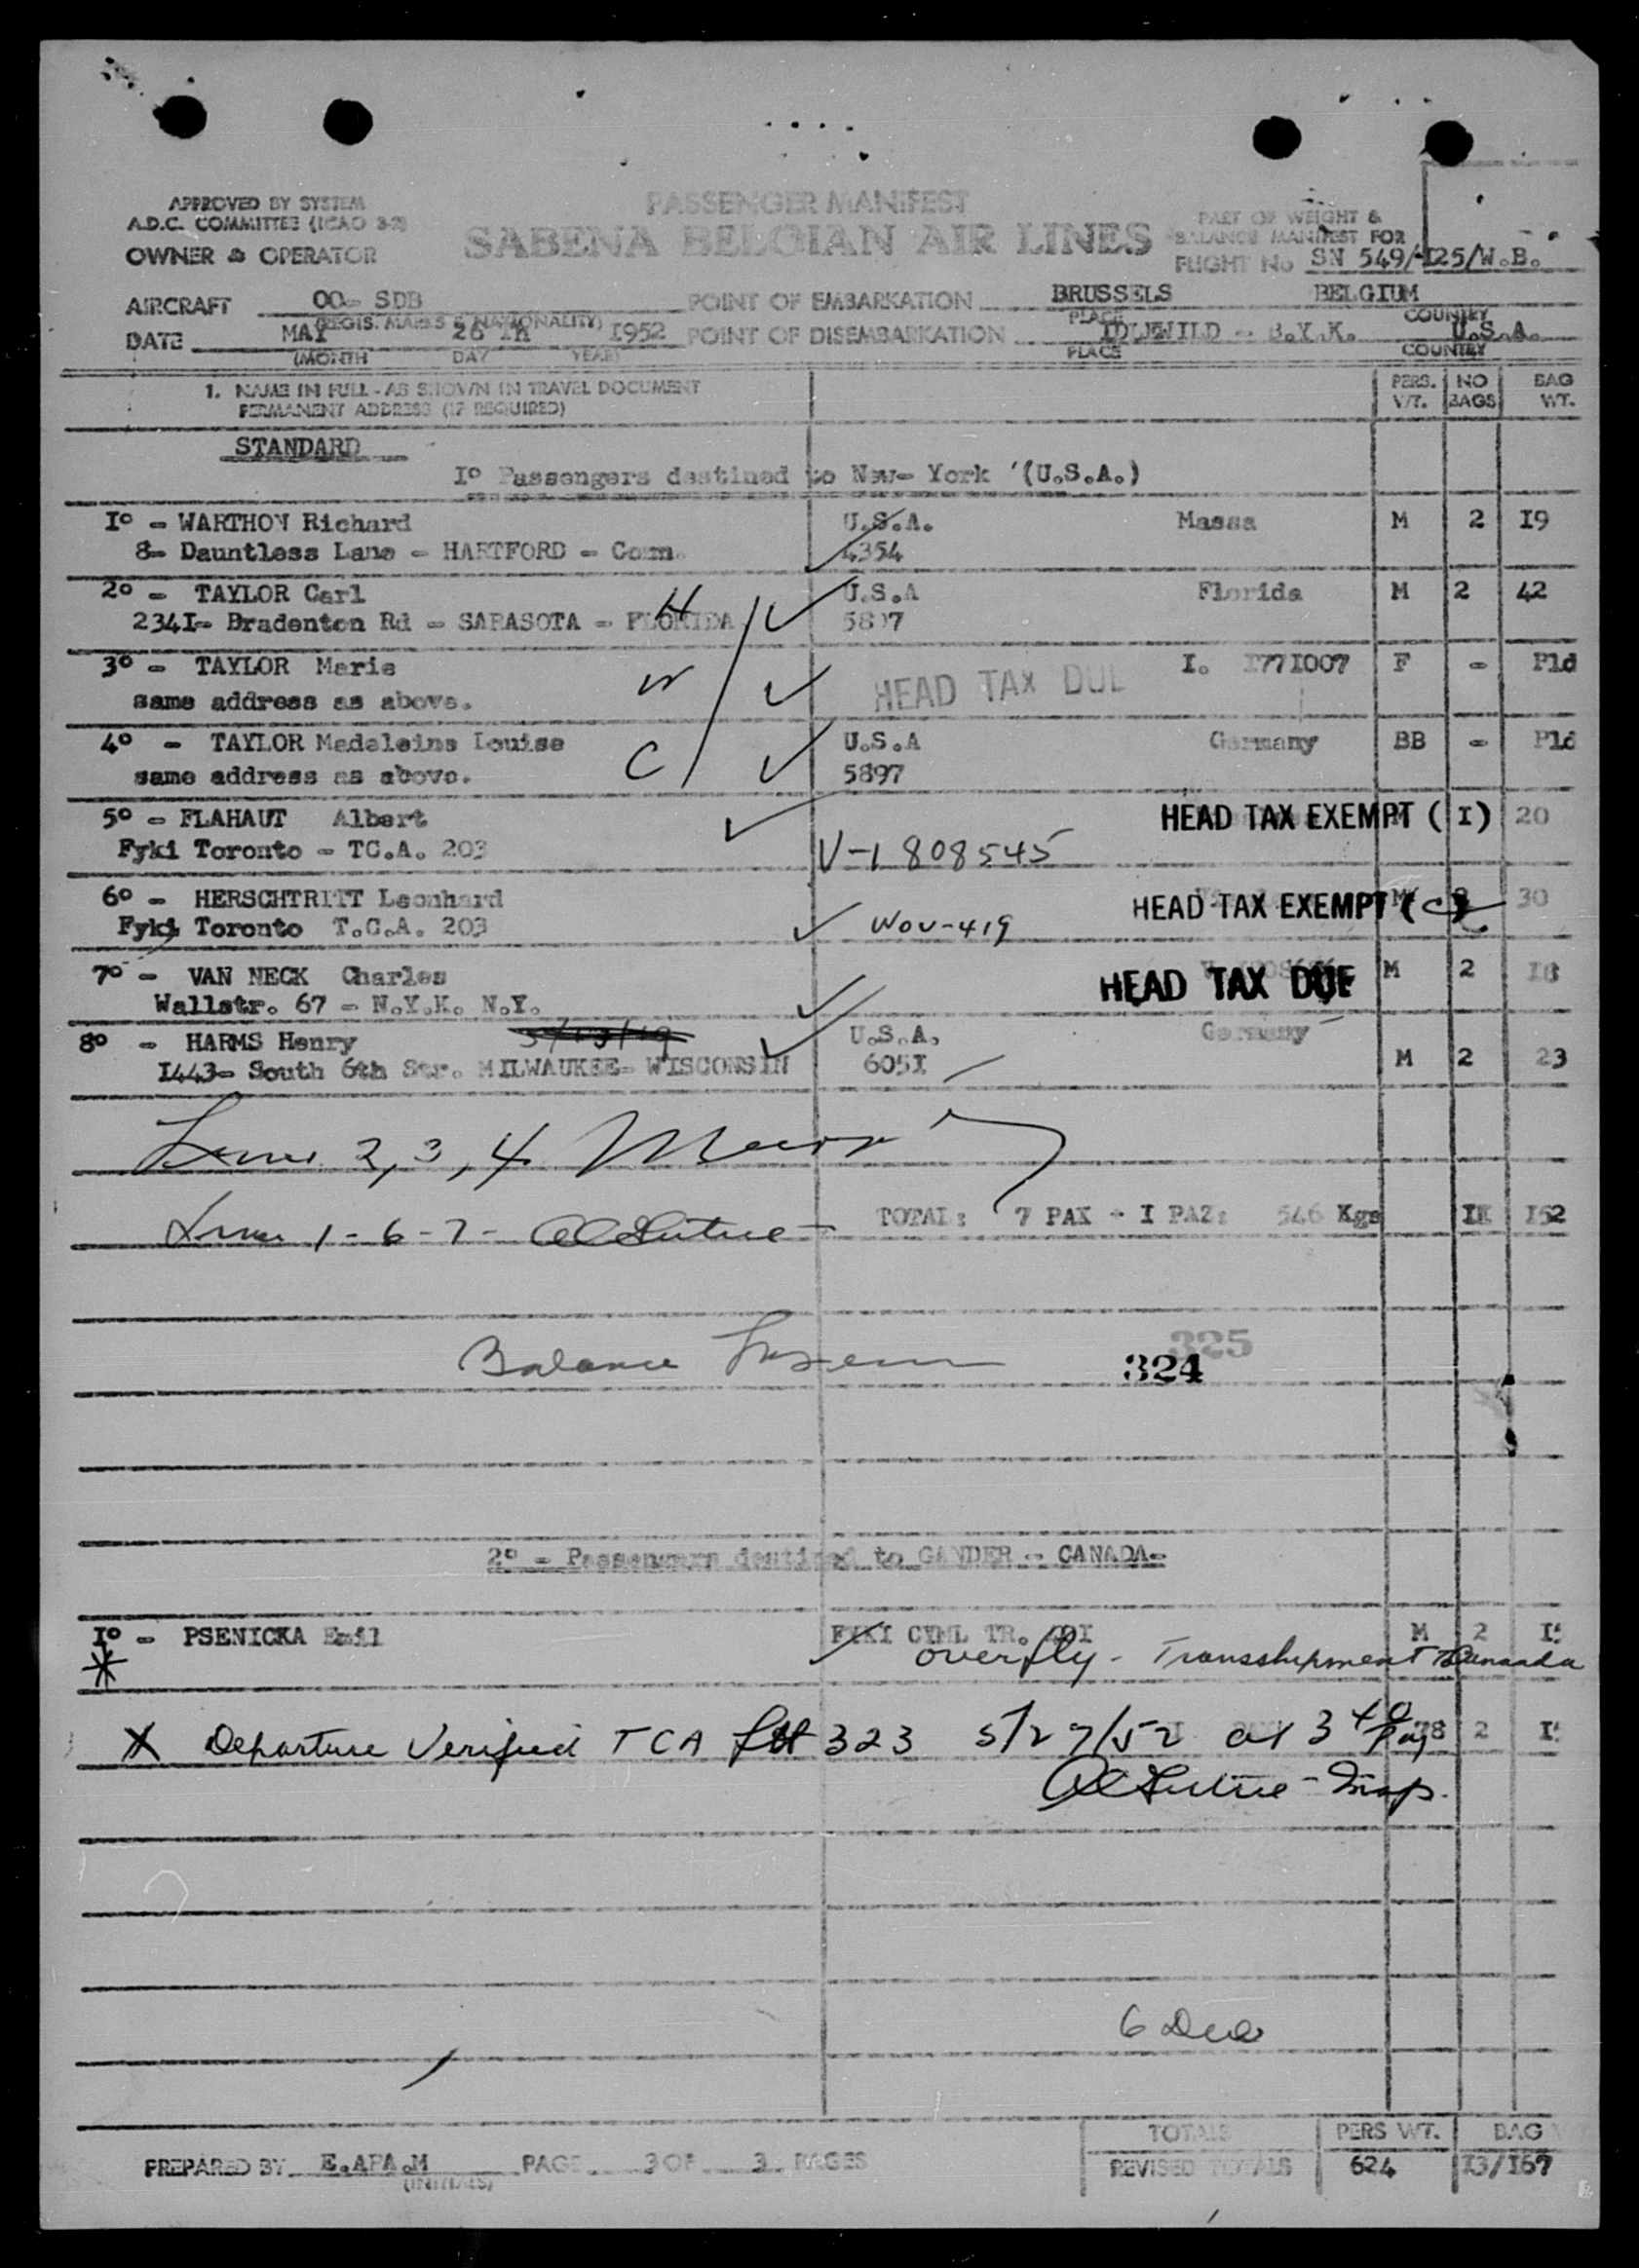 APPROVED BY SYSTEM
A.D.C. COMMITTEE (ICAO 3-2)
OWNER & OPERATOR
PASSENGER MANIFEST
SABENA BELGIAN AIR LINES
PART OF WEIGHT &
BALANCE MANIFEST FOR
FLIGHT No SN 549/I25/W.B.
AIRCRAFT OO- SDB POINT OF EMBARKATION BRUSSELS BELGIUM
(REGIS. MARKS & NATIONALITY) PLACE COUNTRY
DATE MAY 26 TH I952 POINT OF DISEMBARKATION IDLEWILD - B.Y.K. U.S.A.
(MONTH DAY YEAR) PLACE COUNTRY
1. NAME IN FULL - AS SHOWN IN TRAVEL DOCUMENT PERS. NO BAG
PERMANENT ADDRESS (IF REQUIRED) WT. BAGS WT.
STANDARD
I° Passengers destined to New- York (U.S.A.)
I° - WARTHON Richard U.S.A. Massa M 2 I9
8- Dauntless Lane - HARTFORD - Conn. 4354
2° - TAYLOR Carl H U.S.A Florida M 2 42
234I- Bradenton Rd - SARASOTA - FLORIDA 5897
3° - TAYLOR Marie W HEAD TAX DUE I. I77I007 F - Pld
same address as above.
4° - TAYLOR Madeleine Louise C U.S.A Germany BB - Pld
same address as above. 5897
5° - FLAHAUT Albert HEAD TAX EXEMPT (I) 20
Fyki Toronto - TC.A. 203 V-1808545
6° - HERSCHTRITT Leonhard HEAD TAX EXEMPT (C) 30
Fyki Toronto T.C.A. 203 Wov-419
7° - VAN NECK Charles HEAD TAX DUE M 2 I8
Wallstr. 67 - N.Y.K. N.Y.
8° - HARMS Henry U.S.A. Germany
I443- South 6th Str. MILWAUKEE- WISCONSIN 605I M 2 23
Lines 2, 3, 4
TOTAL: 7 PAX + I PAZ: 546 Kgs II I52
Lines 1-6-7-
Balance
325
324
2° - Passengers destined to GANDER - CANADA-
I° - PSENICKA Emil FYKI CYML TR. M 2
* overfly - Transshipment To Canada
X Departure Verified TCA flt 323 5/27/52 at 3 40 78 2
Insp.
6 Due
TOTALS PERS WT. BAG
PREPARED BY E.APA.M PAGE 3 OF 3 PAGES REVISED TOTALS 624 I3/I67
(INITIALS)